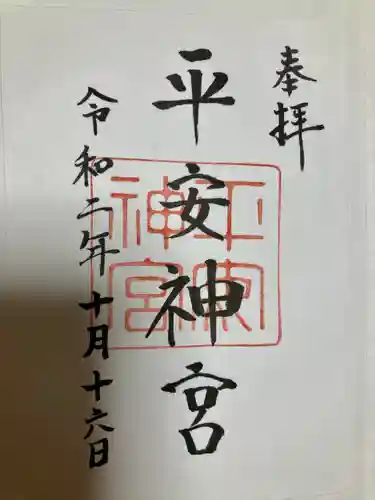 奉拝
平安神宮
令和二年十月十六日
平安神宮